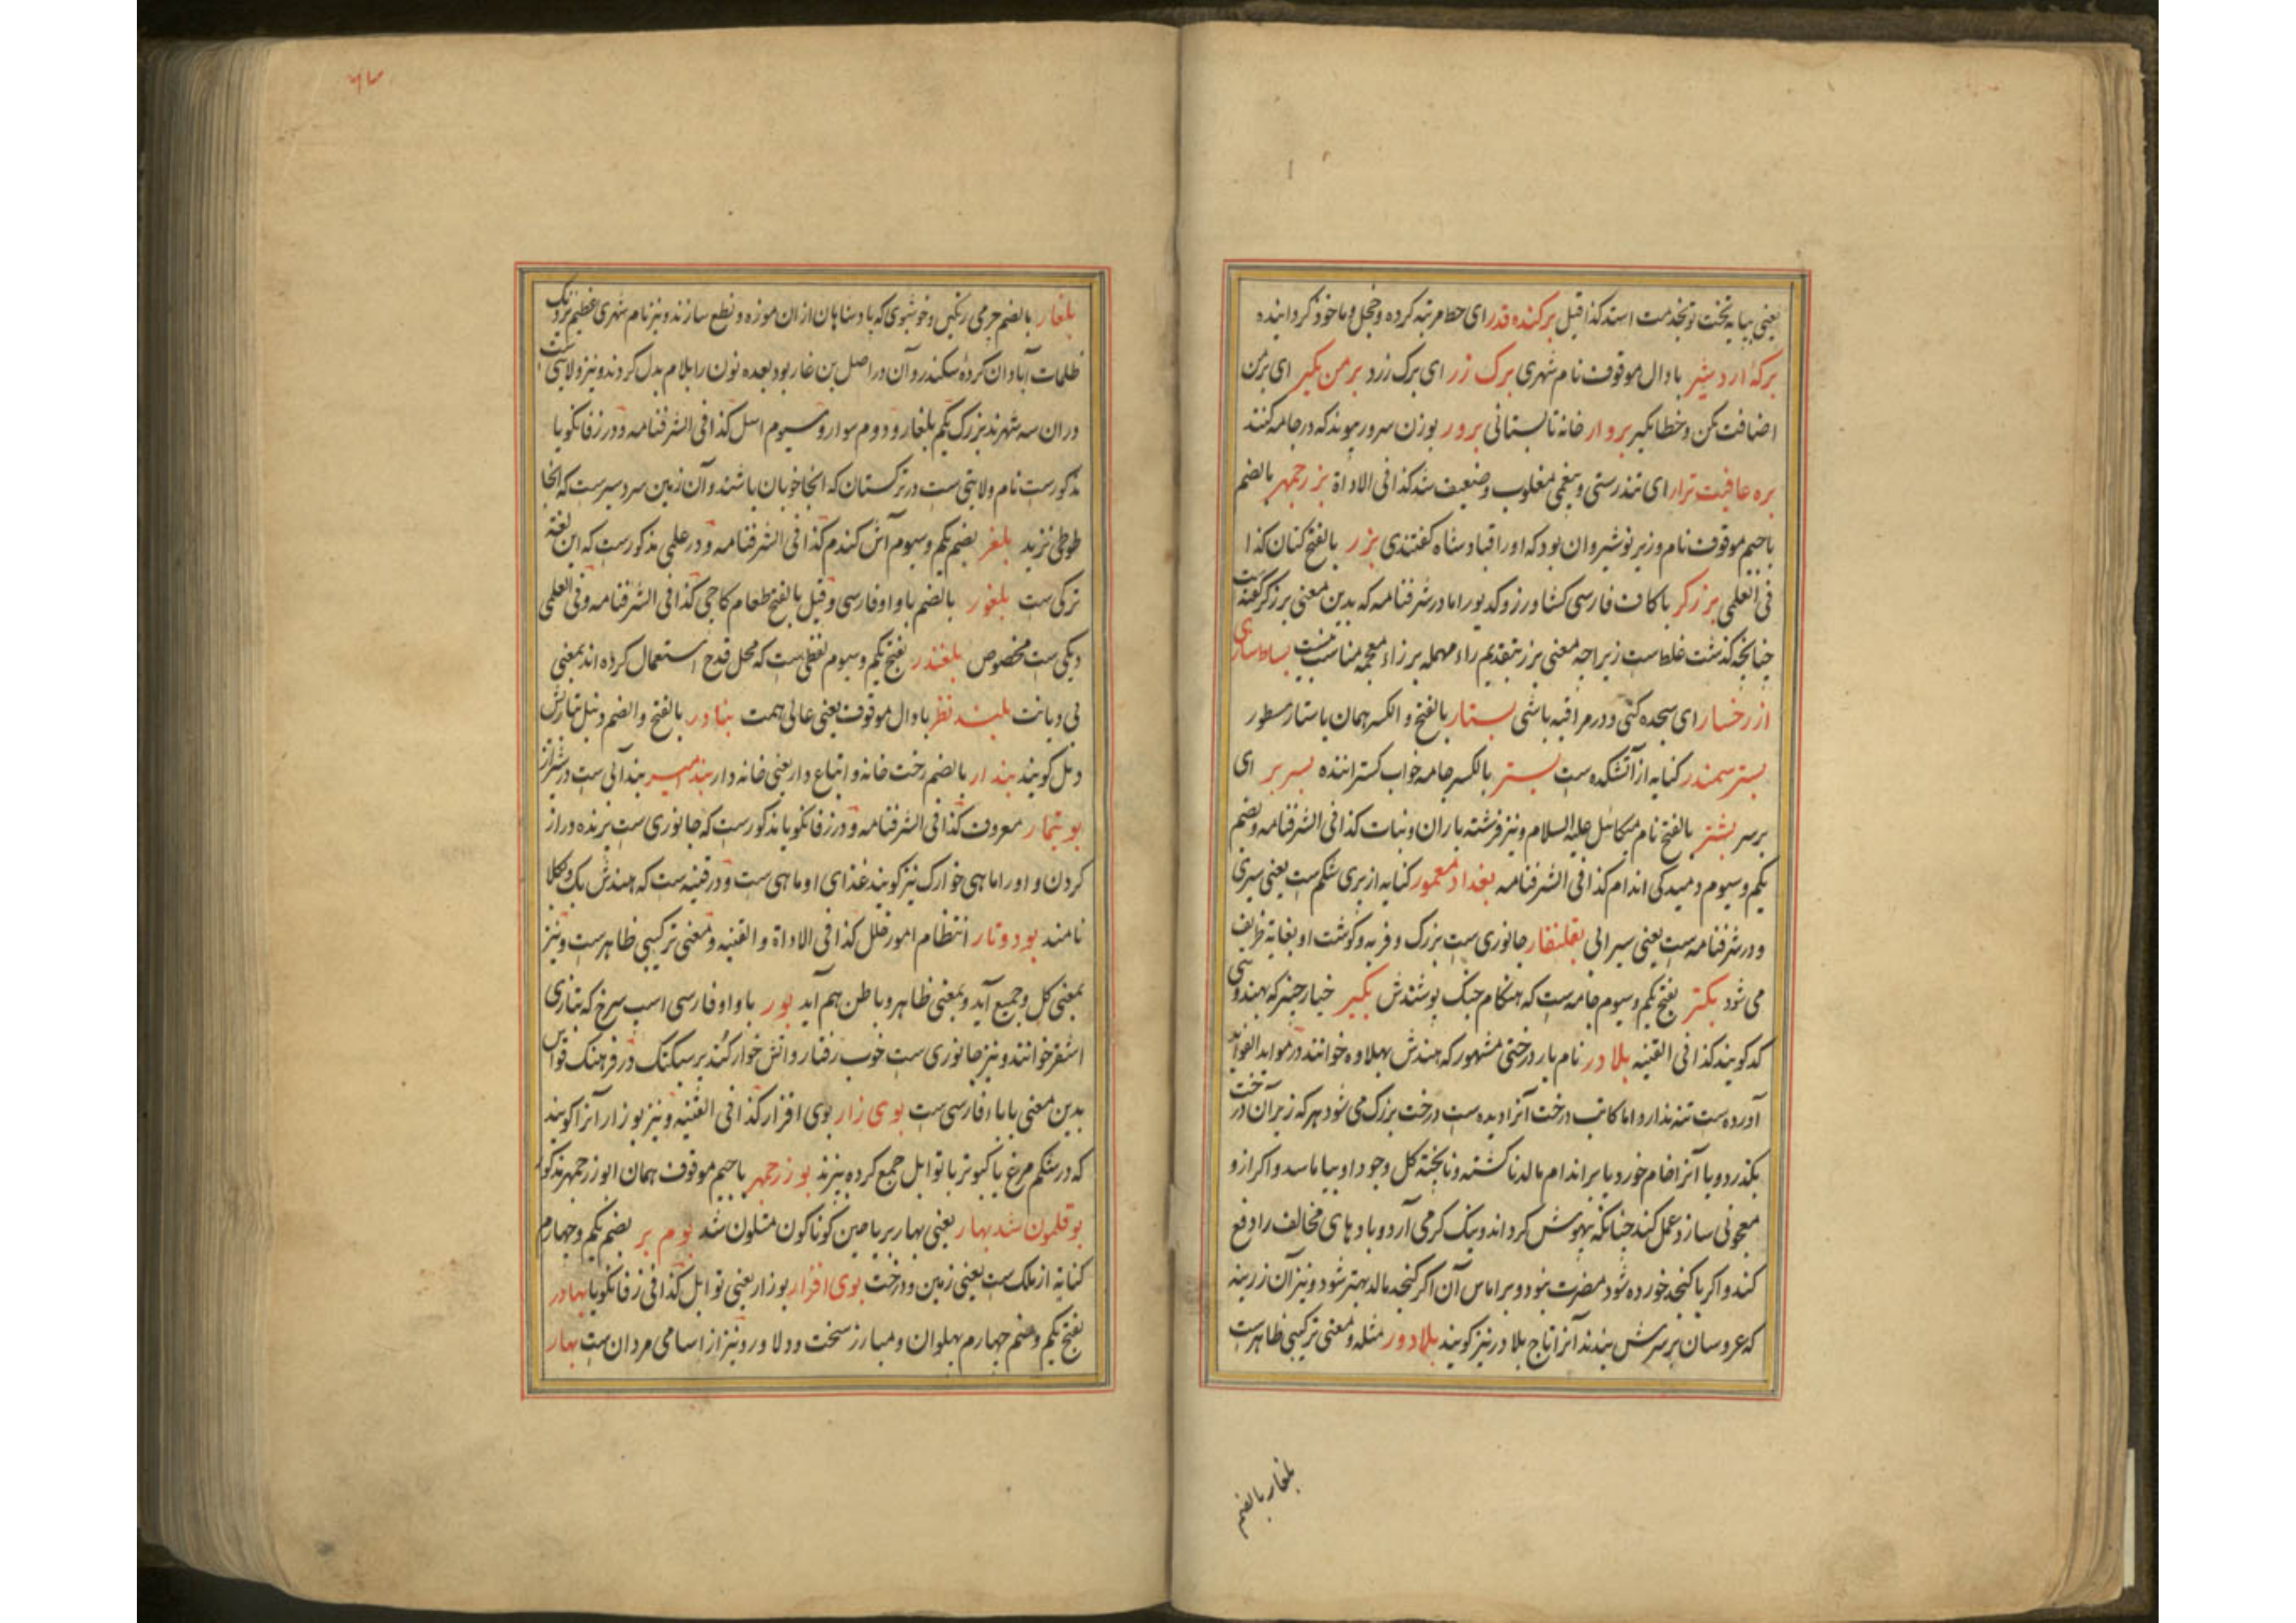 یعنی بپایه تخت تو بخدمت استد کذا قیل برکنده قدر ای حط مرتبه کرده و خجل و ماخوذ کردانیده
برکه اردشیر با دال موقوف نام شهری برک زر ای برک زرد بر من مکیر ای بر من
اضافت مکن و خطا مکیر بروار خانه تابستانی برور بوزن سرور پیوند که در جامه کنند
بره عافیت نزار ای تندرستی و بیغمی مغلوب و ضعیف شد کذا فی الاداة بزرجمهر بالضم
با جیم موقوف نام وزیر نوشیروان بود که او را قباد شاه کفتندی بزر بالفتح کتان کذا
فی العلمی برزکر با کاف فارسی کشاورز و کدیور اما در شرفنامه که بدین معنی بزرکر گفته است
چنانچه کذشت غلط ست زیراچه معنی برز بتقدیم راء مهمله بر زاء معجمه مناسب نیست بساط سازی
از رخسار ای سجده کنی و در مراقبه باشی بستار بالفتح و الکسر همان باستار مسطور
بستر سمندر کنایه از آتشکده ست بستر بالکسر جامه خواب کستراننده بسر بر ای
بر سر بشتر بالفتح نام میکائیل علیه السلام و نیز فرشته باران و نبات کذا فی الشرفنامه و بضم
یکم و سیوم دمیدکی اندام کذا فی الشرفنامه بغداد معمور کنایه از پری شکم ست یعنی سیری
و در شرفنامه ست یعنی سیرابی بقلنقار جانوری ست بزرک و فربه و کوشت او بغایة ظریف
می شود بکتر بفتح یکم و سیوم جامه ست که هنکام جنک پوشندش بکیر خیار چنبر که بهندوی
کد کویند کذا فی القنیه بلادر نام بار درختی مشهور که هندش بهلاوه خوانند در مواید الفواید
آورده ست تنه ندارد اما کاتب درخت آنرا دیده ست درخت بزرک می شود هر که زیر آن درخت
بکذرد و یا آنرا خام خورد یا بر اندام مالد ناکشته و ناپخته کل وجود او بیاماسد و اکر ازو
معجونی سازد عمل کند چنانکه بیهوش کرداند و نیک کرمی آرد و بادهای مخالف را دفع
کند و اکر با کنجد خورده شود مضرت نبود و بر اماس آن اکر کنجد مالد بهتر شود و نیز آن زرینه
که عروسان بر سرش بندند آنرا تاج بلادر نیز کویند بلادور مثله و معنی ترکیبی ظاهرست
بلغار بالضم
بلغار بالضم چرمی رنکین و خوشبوی که پادشاهان از ان موزه و نطع سازند و نیز نام شهری عظیم نزدیک
ظلمات آبادان کردهٔ سکندر و آن در اصل بن غار بود بعده نون را بلام بدل کردند و نیز ولایتی ست
دران سه شهرند بزرک یکم بلغار و دوم سوار و سیوم اسل کذا فی الشرفنامه و در زفانکویا
مذکورست نام ولایتی ست در ترکستان که انجا خوبان باشند و آن زمین سردسیرست که انجا
طوطی نزید بلغر بضم یکم و سیوم آش کندم کذا فی الشرفنامه و در علمی مذکورست که این لغة
ترکی ست بلغور بالضم با واو فارسی و قیل بالفتح طعام کاچی کذا فی الشرفنامه و فی العلمی
دیکی ست مخصوص بلغندر بفتح یکم و سیوم لفظی ست که محل قدح استعمال کرده اند بمعنی
بی دیانت بلند نظر با دال موقوف یعنی عالی همت بنادر بالفتح و الضم دنبل بتازیش
دمل کویند بندار بالضم رخت خانه و اتباع دار یعنی خانه دار بندمیر بندآبی ست در شیراز
بوتیمار معروف کذا فی الشرفنامه و در زفانکویا مذکورست که جانوری ست پرنده دراز
کردن و او را ماهی خوارک نیز کویند غذای او ماهی ست و در قنیه ست که هندش بک و بکلا
نامند بود و تار انتظام امور خلل کذا فی الاداة و القنیه و معنی ترکیبی ظاهرست و نیز
بمعنی کل و جمیع آید و بمعنی ظاهر و باطن هم آید بور با واو فارسی اسب سرخ که بتازی
اشقر خوانند و نیز جانوری ست خوب رفتار و آتش خوار کنند بر سبکتک در فرهنک قواس
بدین معنی بابا فارسی ست بوی زار بوی افزار کذا فی القنیه و نیز بوزار آنرا کویند
که در شکم مرغ یا کبوتر با توابل جمع کرده بپزند بوزرجمهر با جیم موقوف همان ابوزرجمهر مذکور
بوقلمون شد بهار یعنی بهار بریاحین کوناکون متلون شد بوم بر بضم یکم و چهارم
کنایه از ملک ست یعنی زمین و درخت بوی افزار بوزار یعنی توابل کذا فی زفانکویا بهادر
بفتح یکم و ضم چهارم پهلوان و مبارز سخت و دلاور و نیز از اسامی مردان ست بهار